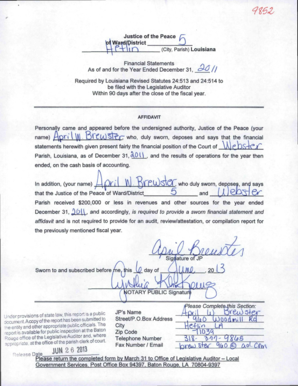 9852
Justice of the Peace
Ward/District 5
Heflin (City, Parish) Louisiana
Financial Statements
As of and for the Year Ended December 31, 2011
Required by Louisiana Revised Statutes 24:513 and 24:514 to
be filed with the Legislative Auditor
Within 90 days after the close of the fiscal year.
AFFIDAVIT
Personally came and appeared before the undersigned authority, Justice of the Peace (your
name) April W. Brewster who, duly sworn, deposes and says that the
financial statements herewith given present fairly the financial position of the Court of Webster
Parish, Louisiana, as of December 31, 2011, and the results of operations for the year then
ended, on the cash basis of accounting.
In addition, (your name) April W Brewster who duly sworn, deposes, and says
that the Justice of the Peace of Ward/District 5 and Webster
Parish received $200,000 or less in revenues and other sources for the year ended
December 31, 2011, and accordingly, is required to provide a sworn financial statement and
affidavit and is not required to provide for an audit, review/attestation, or compilation report for
the previously mentioned fiscal year.
April Brewster
Signature of JP
Sworn to and subscribed before me, this 6 day of June, 2013
NOTARY PUBLIC Signature
Under provisions of state law, this report is a public
document. A copy of the report has been submitted to
the entity and other appropriate public officials. The
report is available for public inspection at the Baton
Rouge office of the Legislative Auditor and, where
appropriate, at the office of the parish clerk of court.
Release Date JUN 26 2013
Please Complete this Section:
JP's Name April W Brewster
Street/P.O.Box Address
City Heflin LA
Zip Code 71039
Telephone Number
Fax Number / Email
Please return the completed form by March 31 to Office of Legislative Auditor – Local
Government Services, Post Office Box 94397, Baton Rouge, LA 70804-9397